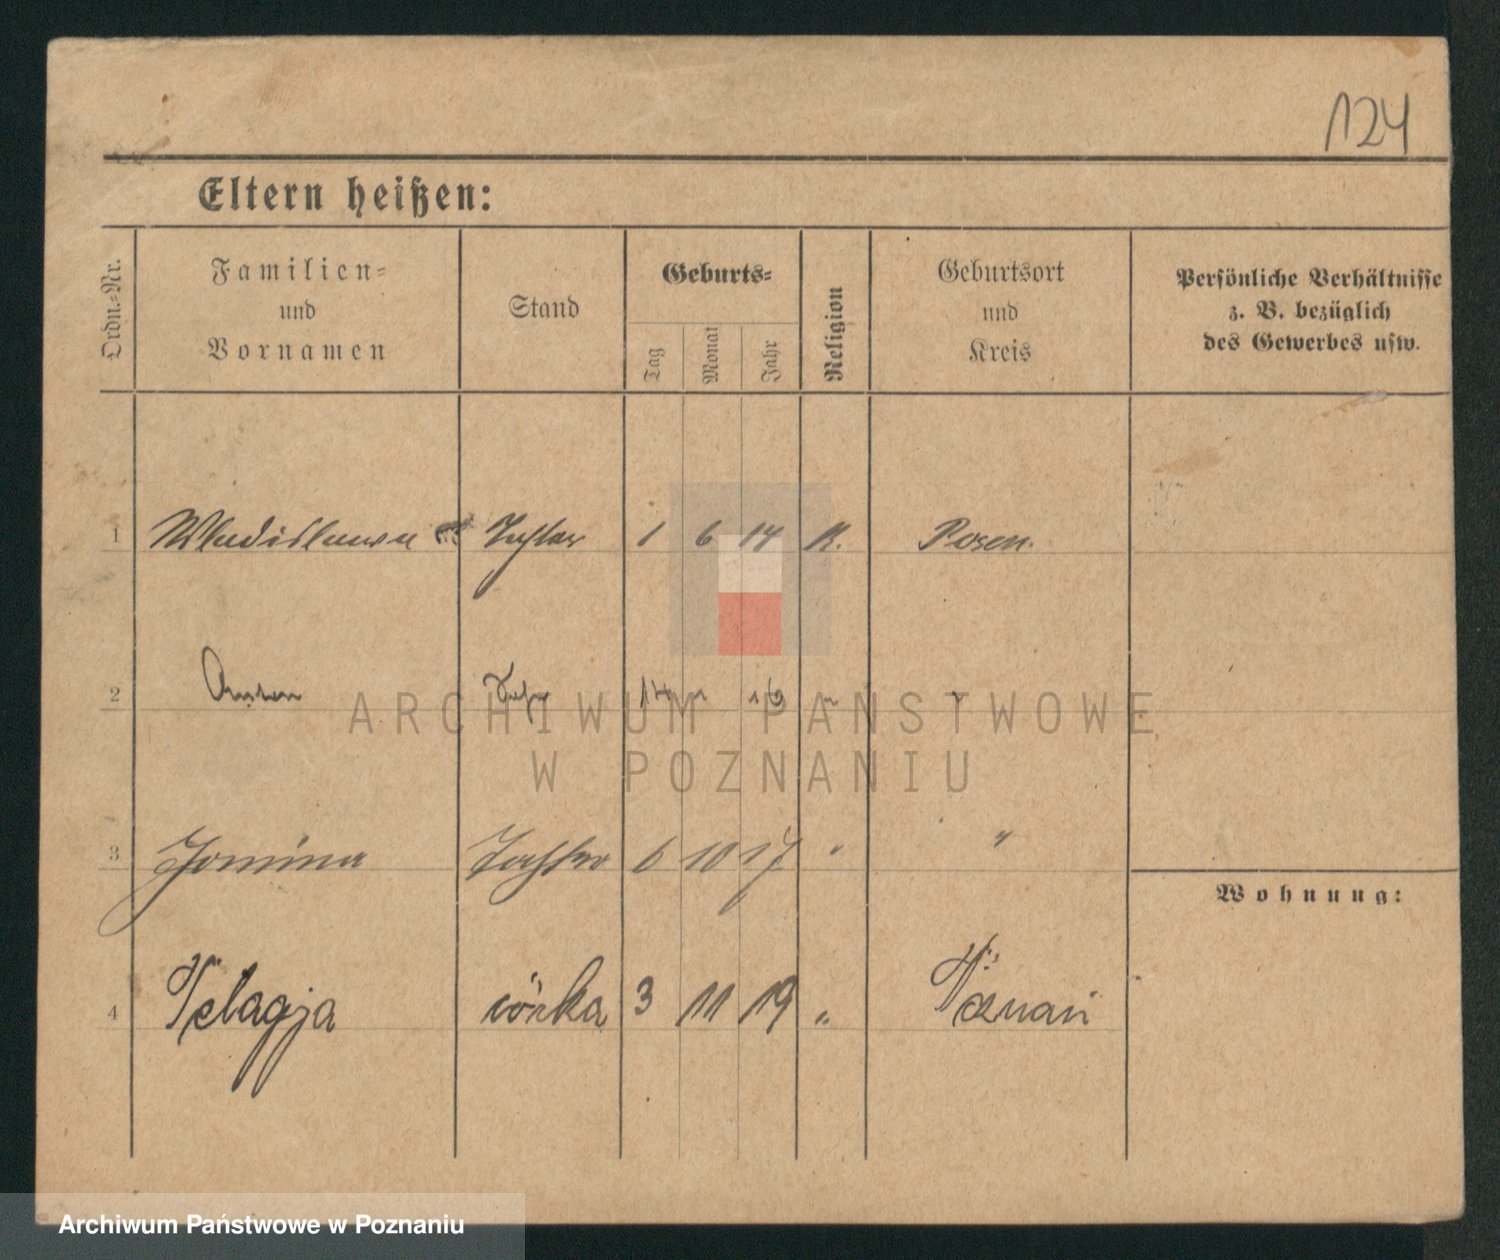 124
Eltern heißen:
Ordn.-Nr.
Familien-
und
Vornamen
Stand
Geburts-
Tag
Monat
Jahr
Religion
Geburtsort
und
Kreis
Persönliche Verhältnisse
z. B. bezüglich
des Gewerbes usw.
1 Wladislawa Tochter 1 6 14 K. Posen.
2 Anton Sohn 14 " 16 "
3 Janina Tochter 6 10 17 " "
Wohnung:
4 Pelagja córka 3 11 19 " Poznań
ARCHIWUM PAŃSTWOWE
W POZNANIU
Archiwum Państwowe w Poznaniu